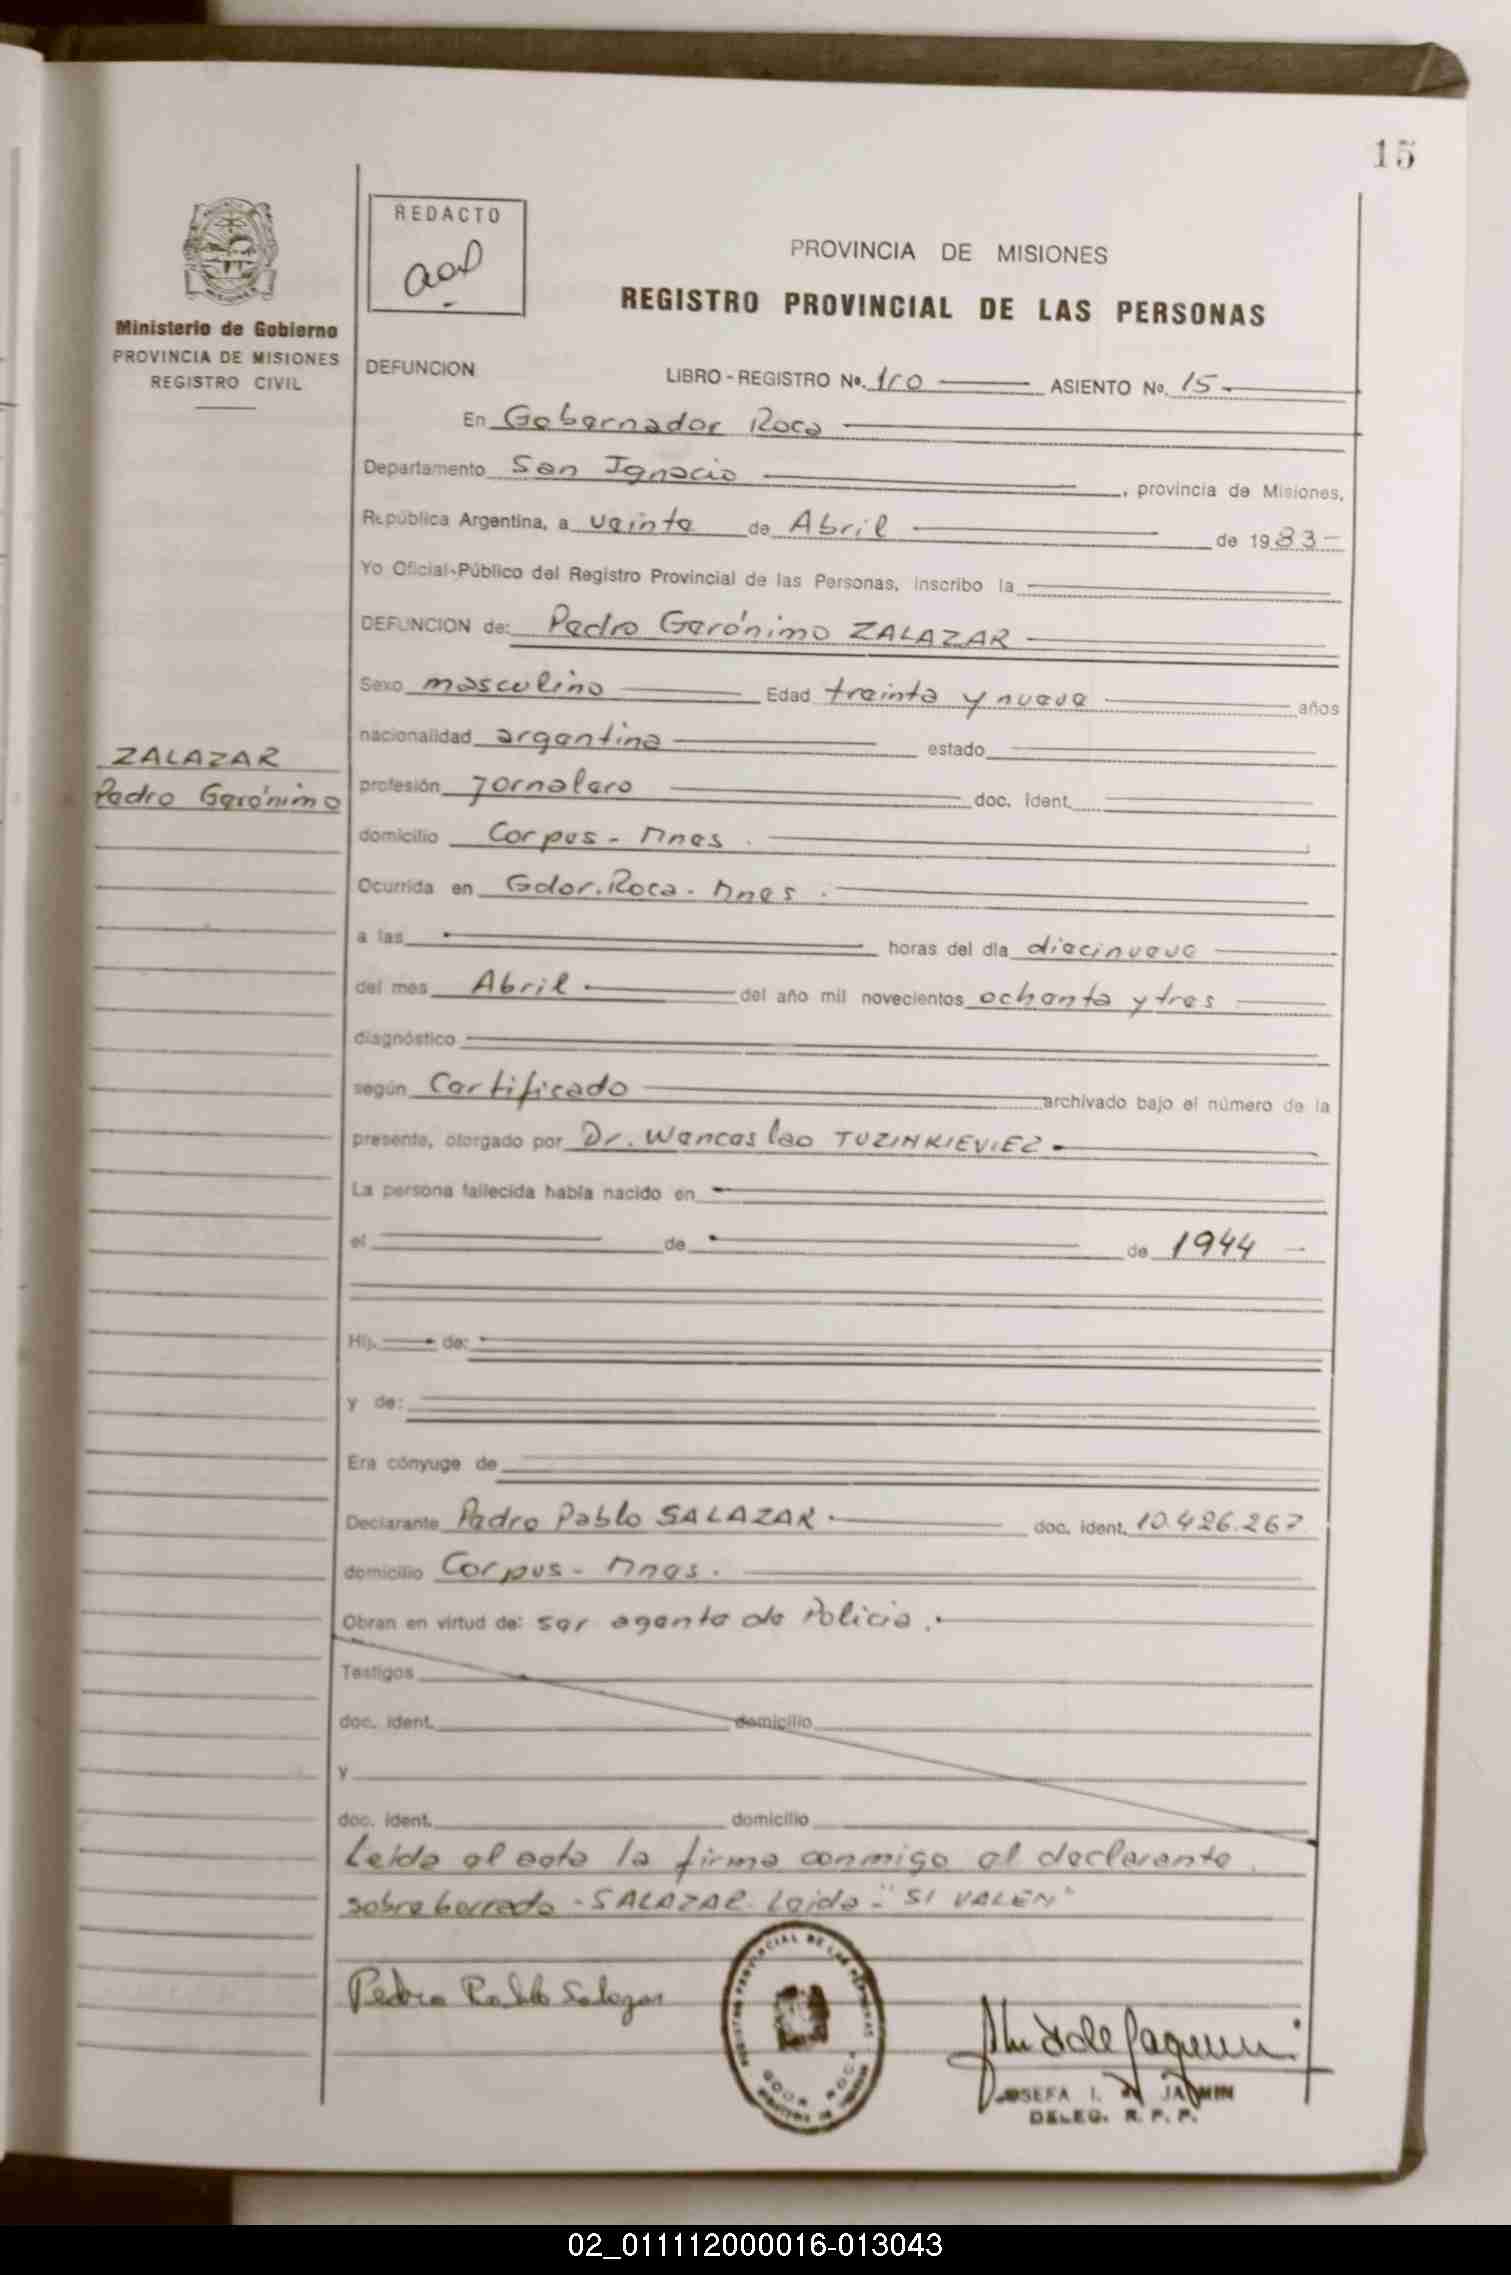 15
REDACTO
PROVINCIA DE MISIONES
REGISTRO PROVINCIAL DE LAS PERSONAS
Ministerio de Gobierno
PROVINCIA DE MISIONES
REGISTRO CIVIL
DEFUNCION LIBRO - REGISTRO Nº. 1ro ASIENTO No. 15
En Gobernador Roca
Departamento San Ignacio, provincia de Misiones,
República Argentina, a veinte de Abril de 1983
Yo Oficial-Público del Registro Provincial de las Personas, inscribo la
DEFUNCION de: Pedro Gerónimo ZALAZAR
Sexo masculino Edad treinta y nueve años
nacionalidad argentina estado
ZALAZAR
Pedro Gerónimo
profesión jornalero doc. ident.
domicilio Corpus - Mnes.
Ocurrida en Gdor. Roca - Mnes.
a las horas del día diecinueve
del mes Abril del año mil novecientos ochenta y tres
diagnóstico
según Certificado archivado bajo el número de la
presente, otorgado por Dr. Wenceslao TUZINKIEVIEZ
La persona fallecida había nacido en
el de de 1944
Hij. de:
y de:
Era cónyuge de
Declarante Pedro Pablo SALAZAR doc. ident. 10.426.267
domicilio Corpus - Mnes.
Obran en virtud de: ser agente de Policia.
Testigos
doc. ident. domicilio
y
doc. ident. domicilio
Leida el acta la firma conmigo el declarante.
sobreborrado - SALAZAR - Leida - "SI VALEN"
Pedro Pablo Salazar
REGISTRO PROVINCIAL DE LAS PERSONAS
GDOR ROCA
JOSEFA I. DE JACMIN
DELEG. R. P. P.
02_011112000016-013043